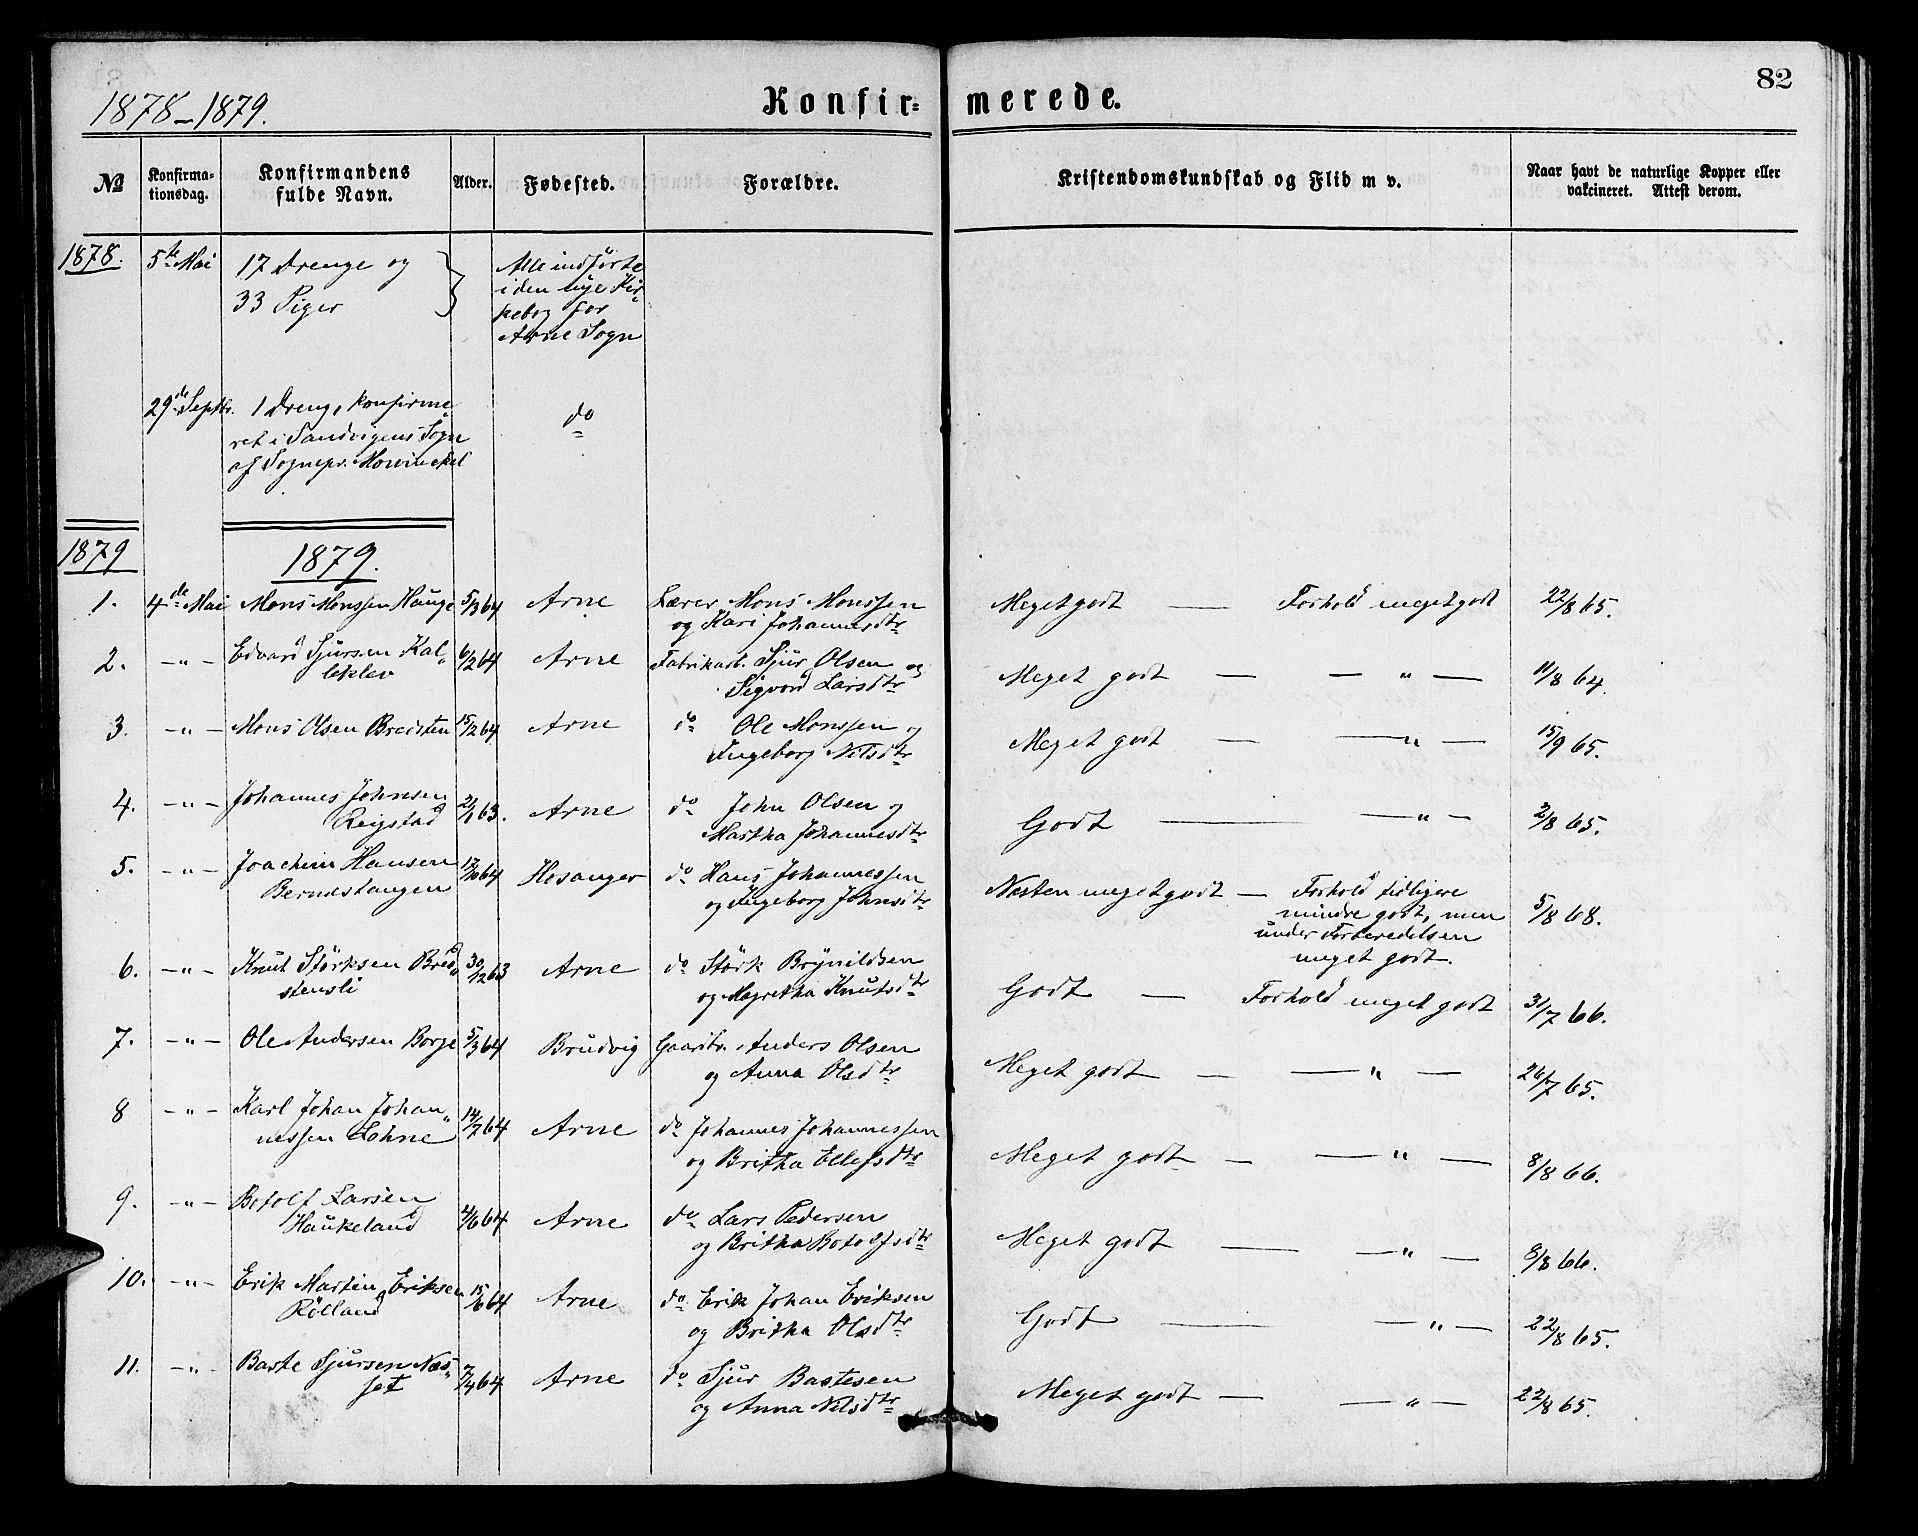 82
1878-1879.
Konfir= merede.
№
Konfirma-
tionsdag.
Konfirmandens
fulde Navn.
Alder.
Fødested.
Forældre.
Kristendomskundskab og Flid m v.
Naar havt de naturlige Kopper eller
vakcineret. Attest derom.
1878. 5te Mai 17 Drenge og
33 Piger
Alle indførte
i den nye Kir-
kebog for
Arne Sogn
29de Septbr. 1 Dreng, konfirme-
ret i Sandvigens Sogn
af Sognepr. Mowinckel
do
1879 1879.
1. 4de Mai Mons Monssen Hauge 5/3 64 Arne Lærer Mons Monssen Meget godt — Forhold meget godt 22/8 65.
og Kari Johannesdtr
2. -"- Edvard Sjursen Kal- 6/2 64 Arne Fabrikarb. Sjur Olsen og Meget godt — — " — 11/8 64.
leklev Sigvord Larsdtr
3. -"- Mons Olsen Breisten 15/2 64 Arne do Ole Monssen og Meget godt — — " — 15/9 65.
Ingeborg Nilsdtr
4. -"- Johannes Johnsen 2/1 63. Arne do John Olsen og Godt — — " — 2/8 65.
Reigstad Martha Johannesdtr
5. -"- Joachim Hansen 17/10 64 Hosanger do Hans Johannessen Næsten meget godt — Forhold tidligere 5/8 68.
Bernestangen og Ingeborg Johnsdtr mindre godt, men
under Forberedelsen
meget godt.
6. -"- Knut Störksen Bred- 30/12 63 Arne do Störk Brynildsen Godt — Forhold meget godt 31/7 66.
stensli og Magretha Knutsdtr
7. -"- Ole Andersen Borge 5/3 64 Brudvig Gaardbr. Anders Olsen Meget godt — — " — 26/7 65.
og Anna Olsdtr
8 -"- Karl Johan Johan- 14/7 64 Arne do Johannes Johannessen Meget godt — — " — 8/8 66.
nessen Lohne og Britha Ellefsdtr
9. -"- Botolf Larsen 4/6 64 Arne do Lars Pedersen Meget godt — — " — 8/8 66.
Haukeland og Britha Botolfsdtr
10. -"- Erik Martin Eriksen 15/6 64 Arne do Erik Johan Eriksen Godt — — " — 22/8 65.
Rölland og Britha Olsdtr
11. -"- Baste Sjursen Næs- 7/4 64 Arne do Sjur Bastesen Meget godt — — " — 22/8 65.
set og Anna Nilsdtr